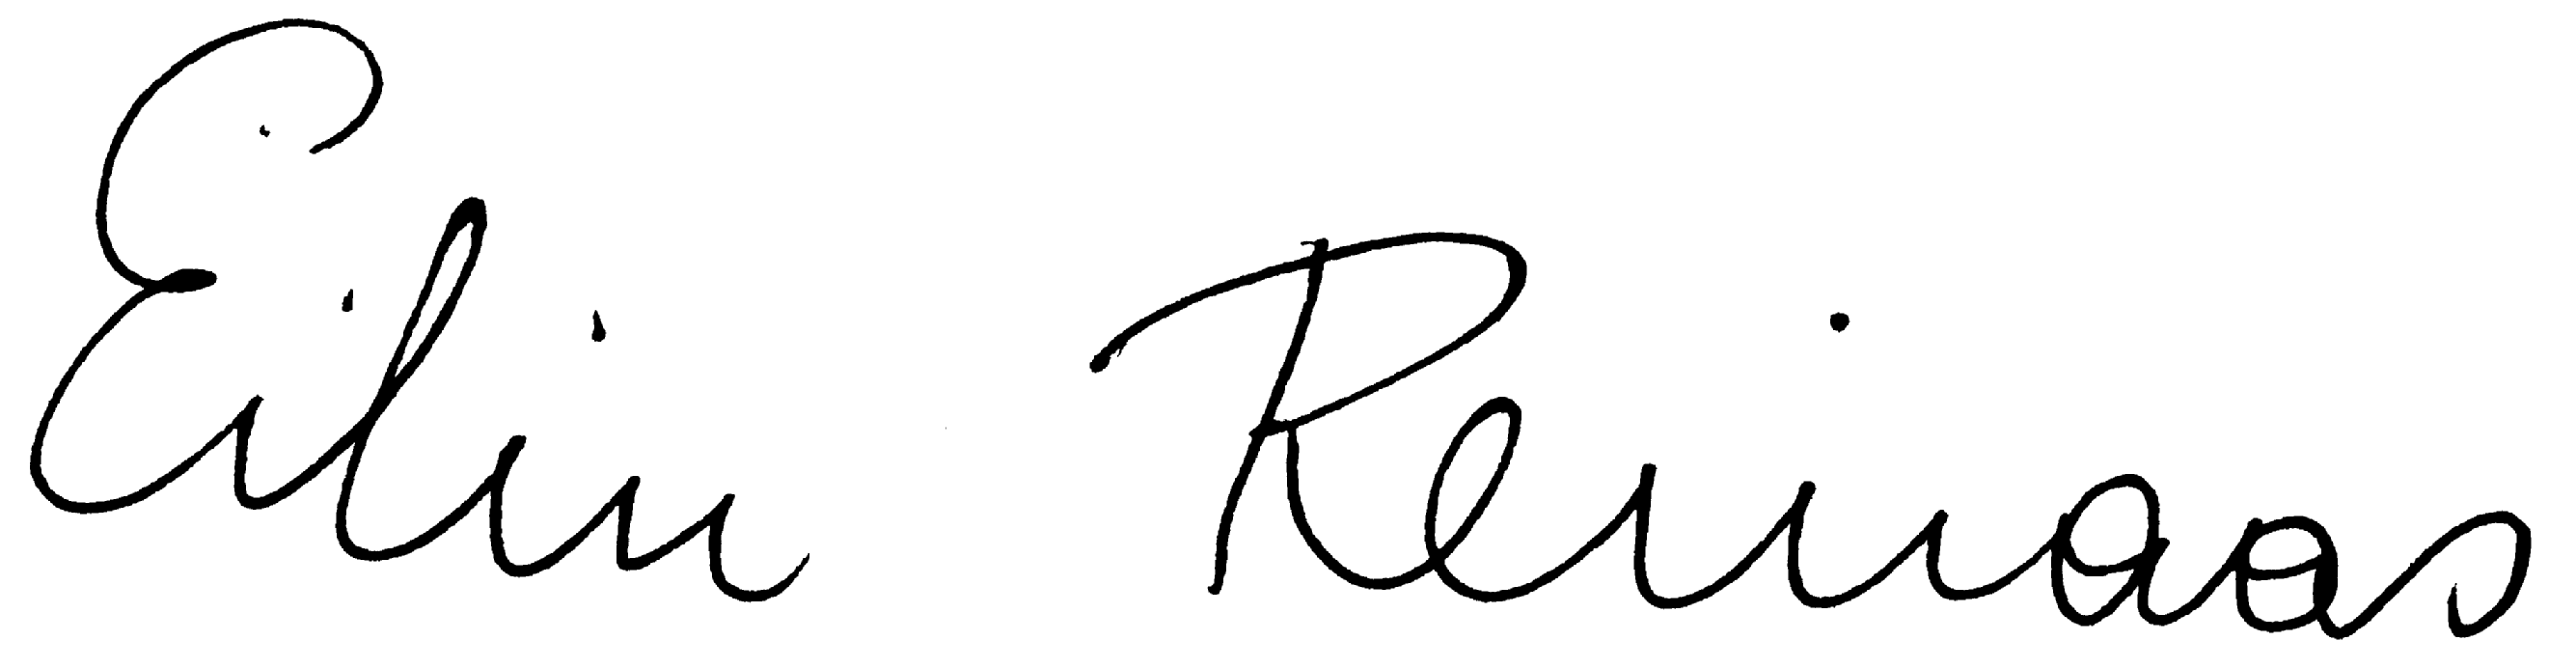 Eilin Reinaas